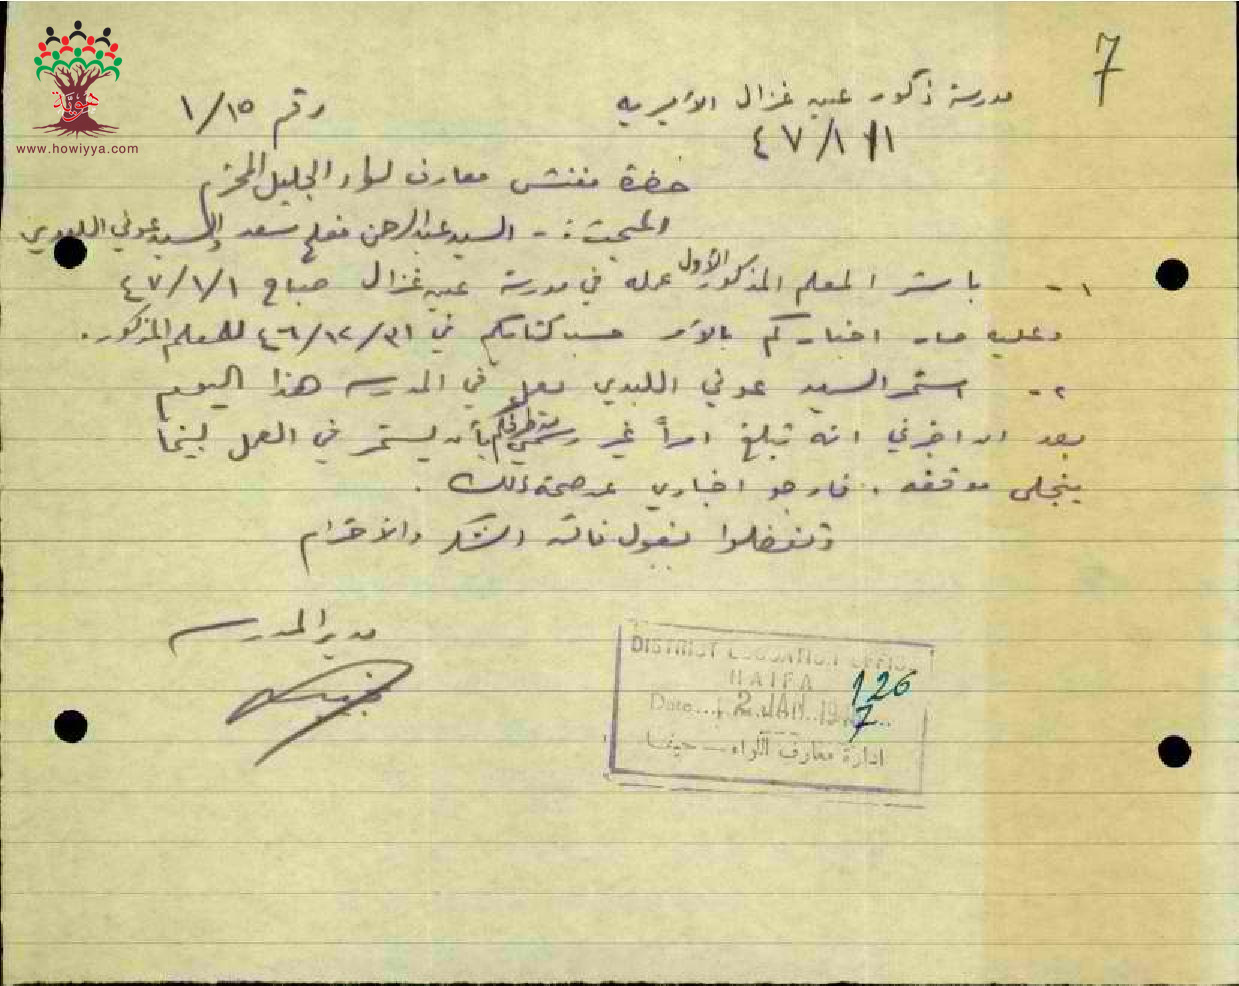 7
مدرسة ذكور عين غزال الأميرية
رقم ١/١٥
٤٧/١/١
حضرة مفتش معارف لواء الجليل المحترم
المبحث :- السيد عبد الرحمن مفلح سعد والسيد عوني اللبدي
١- باشر المعلم المذكور الأول عمله في مدرسة عين غزال صباح ٤٧/١/١
وعليه صار اخباركم بالأمر حسب كتابكم في ٤٦/١٢/٣١ للمعلم المذكور.
٢- استمر السيد عوني اللبدي يعمل في المدرسه هذا اليوم
بعد ان اخبرني انه تبلغ امراً غير رسمي من طرفكم بأن يستمر في العمل بينما
ينجلي موقفه. فارجو اخباري عن صحة ذلك.
وتفضلوا بقبول فائق الشكر والأحترام
مدير المدرسه
DISTRICT EDUCATION OFFICE
HAIFA
126
Date 2 JAN 1947
ادارة معارف اللواء – حيفا
هوية
www.howiyya.com